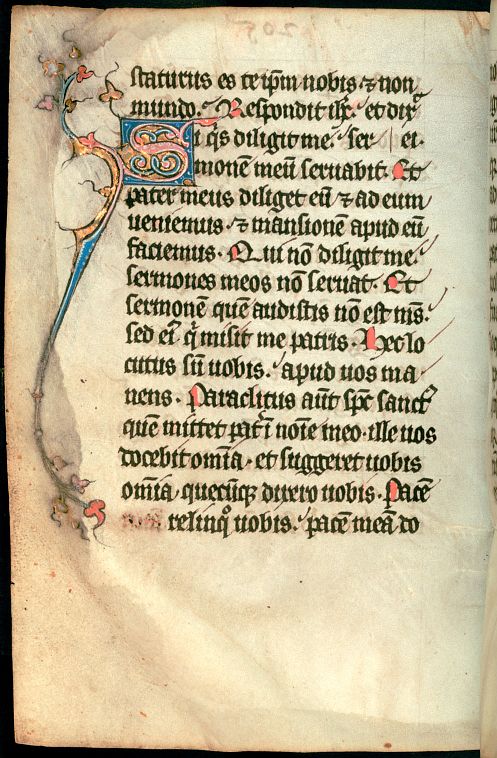 staturus es te ip̄m nobis ⁊ non
mundo. Respondit ih̄c et dix̄
Si q̄s diligit me. ser ei.
monē meū seruabit. Et
pater meus diliget eū ⁊ ad eum
ueniemus. ⁊ mansionē apud eū
faciemus. Qui nō diligit me.
sermones meos nō seruat. Et
sermonē quē audistis nō est m̄s.
sed eī q̄ misit me patris. Hec lo
cutus sū uobis. apud uos ma
nens. Paraclitus aūt sp̄c sanct᷒
quē mittet pat̄ ī noīe meo. ille uos
docebit omīa. et suggeret uobis
om̄ia quecūqꝫ dixero uobis. Pacē
relinq̊ uobis. pacē meā do